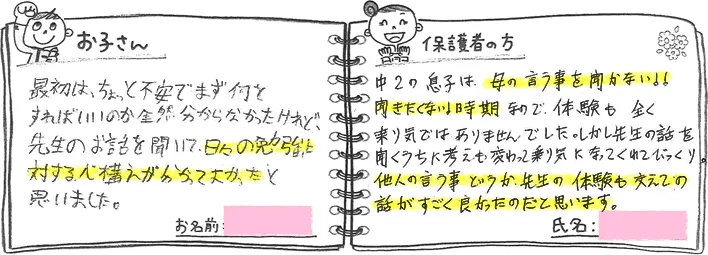 お子さん
最初は、ちょっと不安でまず何を
すればいいのか全然分からなかったけれど、
先生のお話を聞いて、日々の勉強に
対する心構えが分かってよかったと
思いました。
お名前:
保護者の方
中2の息子は、母の言う事を聞かない!!
聞きたくない!時期なので、体験も全く
乗り気ではありませんでした。しかし先生の話を
聞くうちに考えも変わって乗り気になってくれてびっくり。
他人の言う事というか、先生の体験も交えての
話がすごく良かったのだと思います。
氏名: